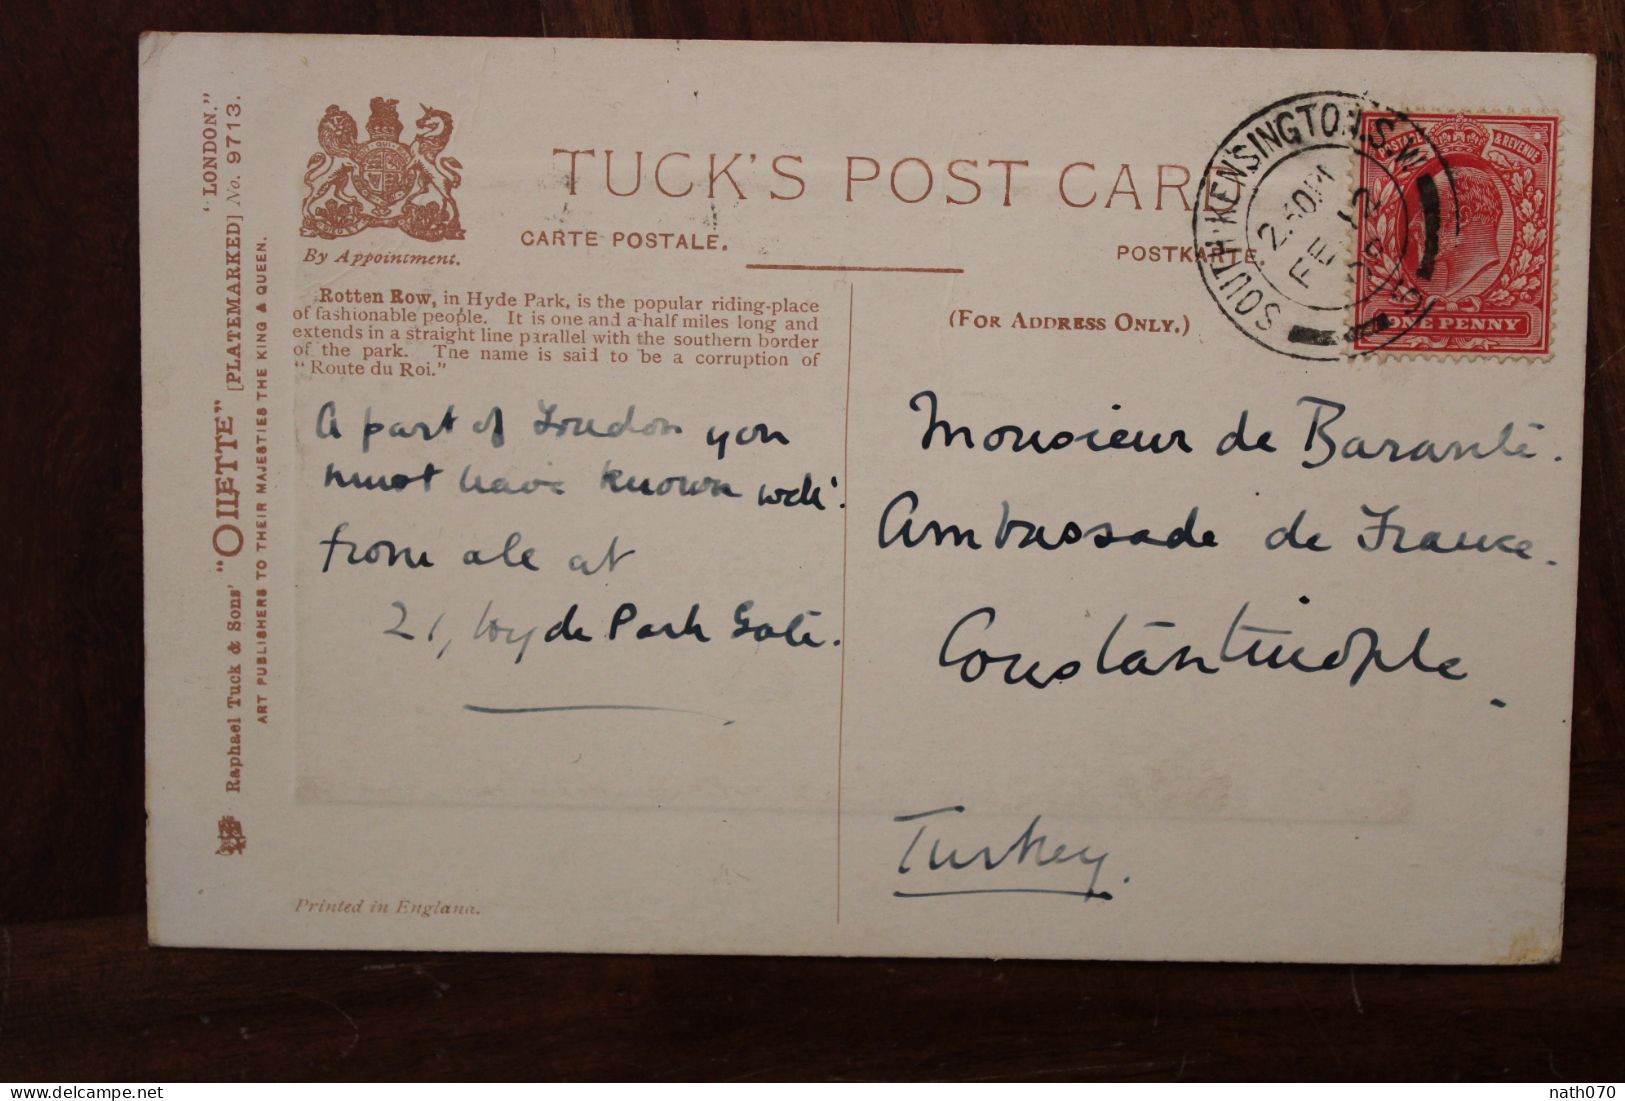 "LONDON."
Raphael Tuck & Sons' "OILETTE" [PLATEMARKED] No. 9713.
ART PUBLISHERS TO THEIR MAJESTIES THE KING & QUEEN.
By Appointment.
TUCK'S POST CAR
CARTE POSTALE.
POSTKARTE.
(FOR ADDRESS ONLY.)
SOUTH KENSINGTON.S.W.
FE 12
POSTAGE & REVENUE
ONE PENNY
Rotten Row, in Hyde Park, is the popular riding-place
of fashionable people. It is one and a-half miles long and
extends in a straight line parallel with the southern border
of the park. The name is said to be a corruption of
"Route du Roi."
A part of London you
must have known well.
from all at
21, Hyde Park Gate.
Monsieur de Barante.
Ambassade de France.
Constantinople.
Turkey.
Printed in England.
nath070